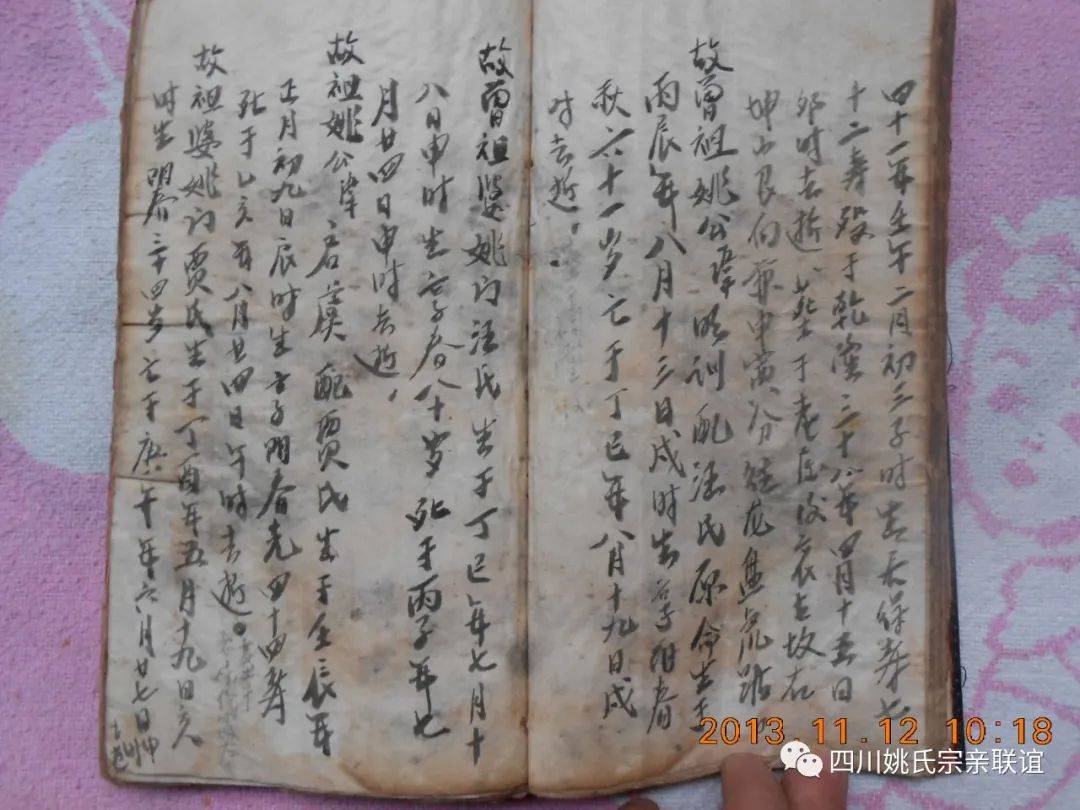 四十一年壬午二月初三子时生天保寿七
十二寿殁于乾隆三十八年四月十五日
卯时去逝 葬于老屋后 坟在
坤山艮向兼申寅分 龙盘虎踞
故曾祖姚公讳 训配汪氏 命生于
丙辰年八月十三日戌时生 享阳春
秋六十一岁亡于丁巳年八月十九日戌
时去逝。
故曾祖婆姚门汪氏生于丁巳年七月十
八日申时生 享春八十岁 死于丙子年七
月廿四日申时去逝。
故祖姚公讳君虞 配贾氏生于壬辰年
正月初九日辰时生 享明春光四十四寿
死于乙亥年八月廿四日午时去逝。
故祖婆姚门贾氏生于丁酉年五月十九日亥
时生 明春三十四岁亡于庚午年六月廿七日
2013.11.12 10:18
四川姚氏宗亲联谊